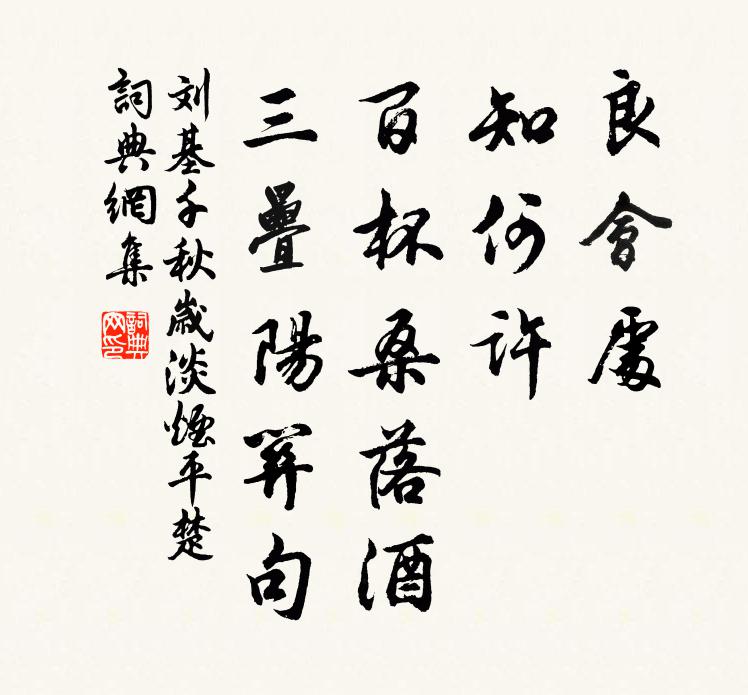 良會處
知何許
百杯桑落酒
三疊陽關句
刘基千秋歲淡煙平楚
詞典網集
詞典网印